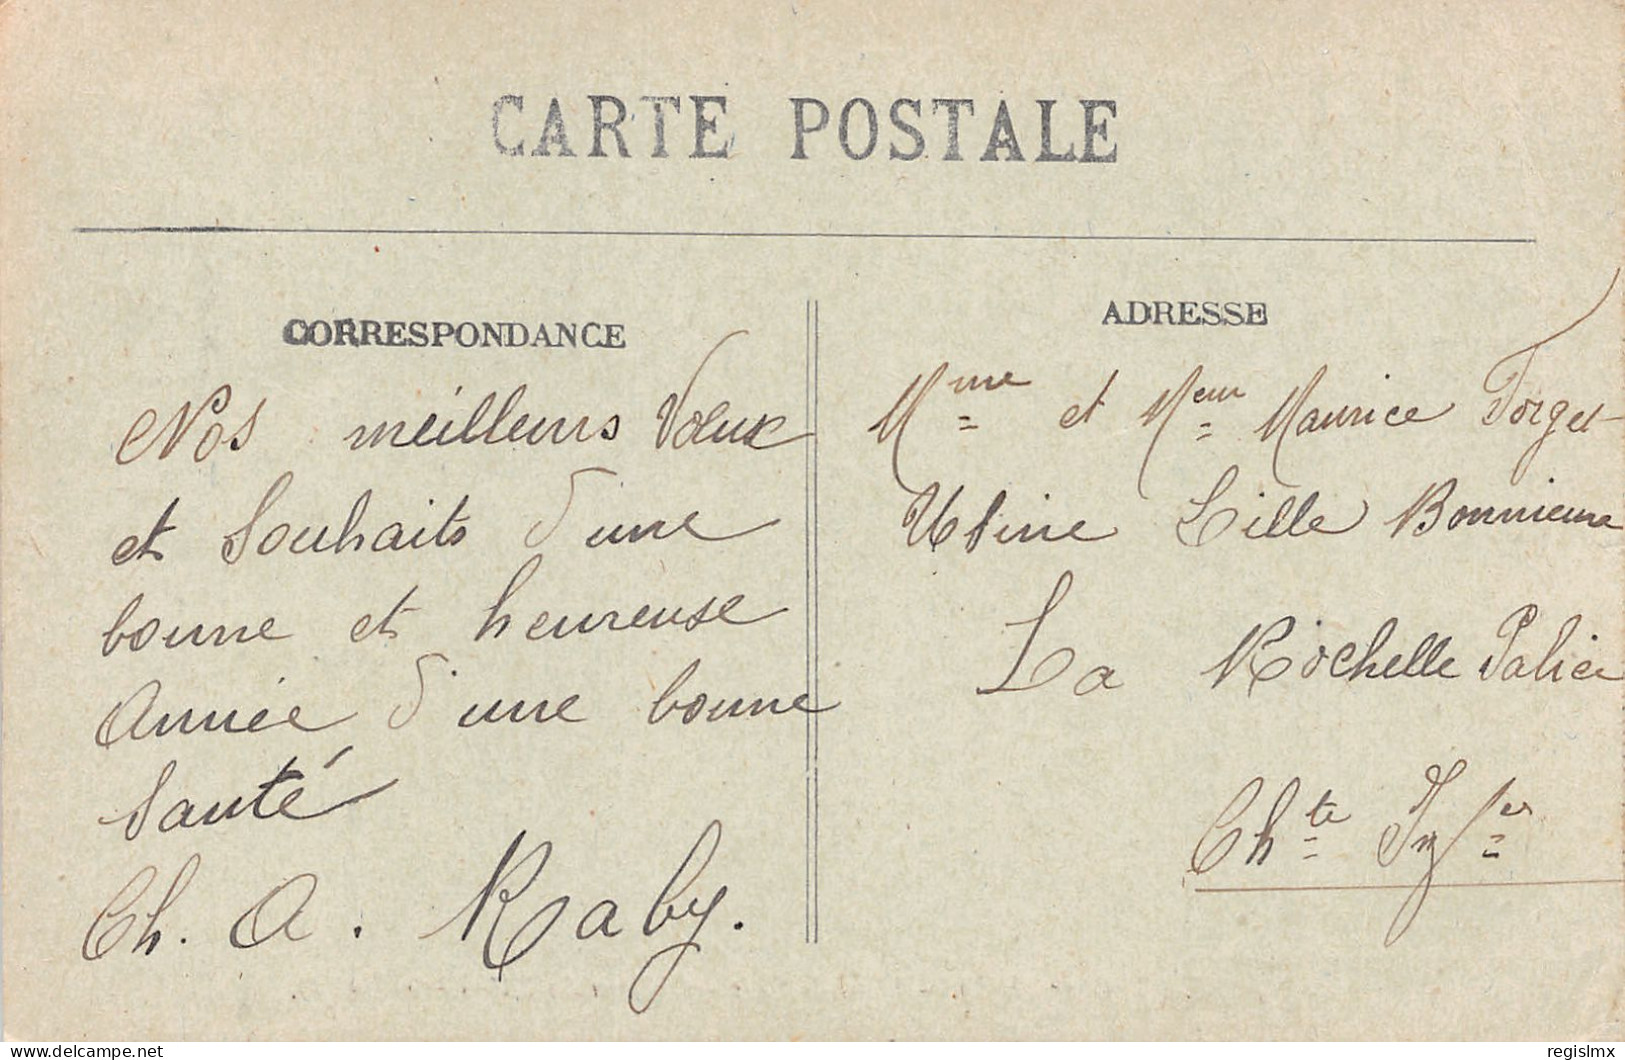 CARTE POSTALE
CORRESPONDANCE
Nos meilleurs Voeux
et Souhaits d'une
bonne et heureuse
Année d'une bonne
Santé
Ch. A. Raby.
ADRESSE
Mme et Meur Maurice Forget
Usine Lille Bonnieure
La Rochelle Palice
Chte Infes
delcampe.net
regislmx